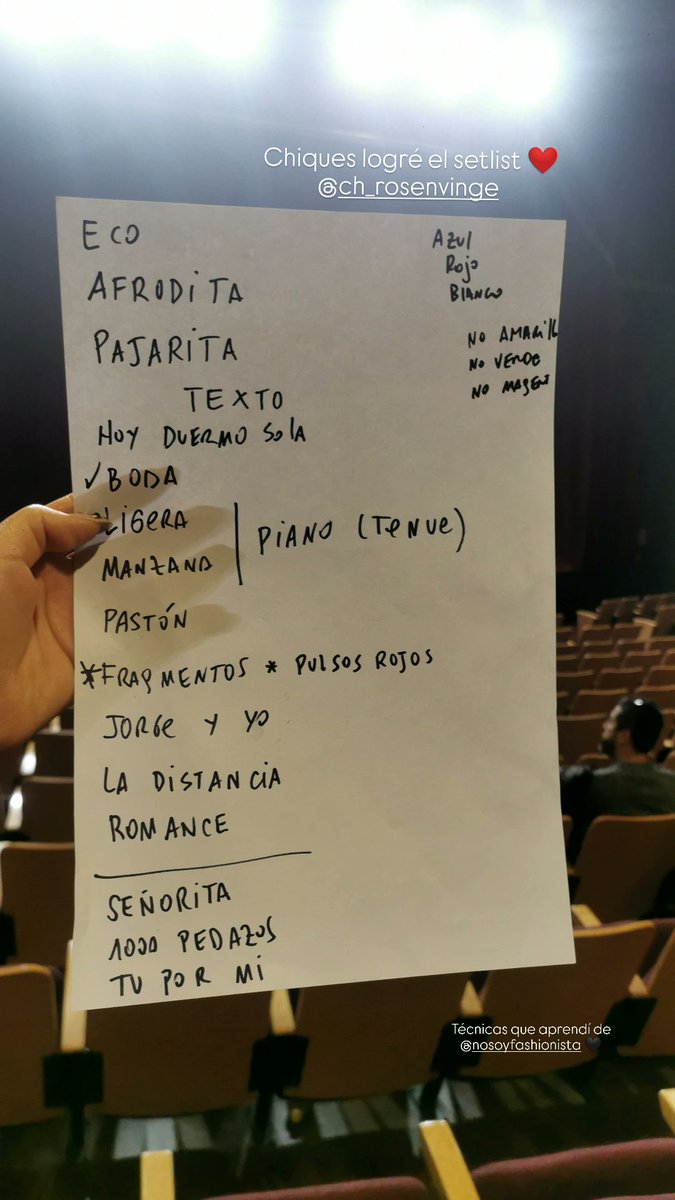 Chiques logré el setlist ❤️
@ch_rosenvinge
ECO
AFRODITA
PAJARITA
TEXTO
HOY DUERMO SOLA
✓BODA
LIGERA
MANZANA
PIANO (TENUE)
PASTÓN
*FRAGMENTOS * PULSOS ROJOS
JORGE Y YO
LA DISTANCIA
ROMANCE
SEÑORITA
1000 PEDAZOS
TU POR MI
AZUL
ROJO
BLANCO
NO AMARILL
NO VERDE
NO MAGEN
Técnicas que aprendí de
@nosoyfashionista 🖤